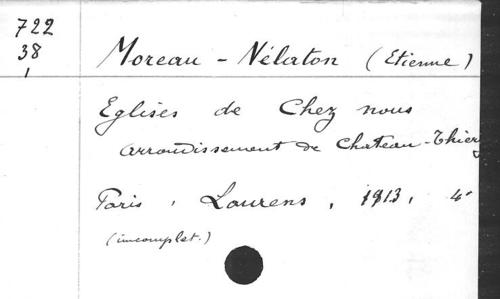 722
38
1
Moreau - Nélaton (Etienne)
Eglises de Chez nous
arrondissement de Chateau-Thierry
Paris, Laurens, 1913, 4°
(incomplet.)